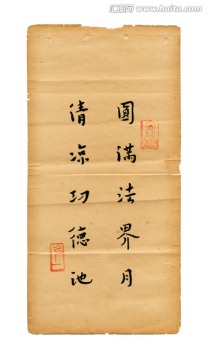 圓滿法界月
清涼功德池
www.huitu.com